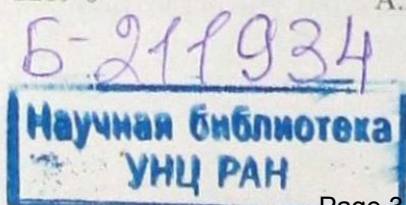 А.
Б-211934
Научная библиотека
УНЦ РАН
Page 3